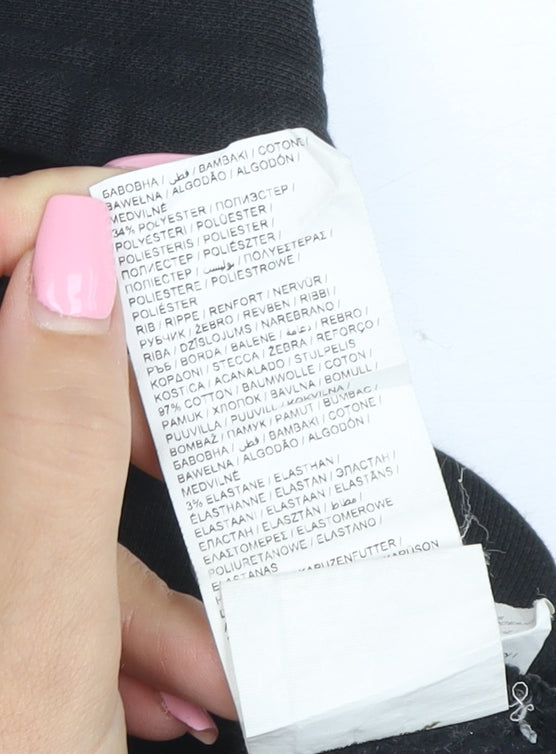 БАВОВНА / قطن / ΒΑΜΒΑΚΙ / COTONE /
BAWEŁNA / ALGODÃO / ALGODÓN /
MEDVILNĖ
34% POLYESTER / ПОЛИЭСТЕР /
POLYESTERI / POLÜESTER /
POLIESTERIS / POLIESTER /
ПОЛИЕСТЕР / POLIÉSZTER /
ПОЛІЕСТЕР / بوليستر / ΠΟΛΥΕΣΤΕΡΑΣ /
POLIESTERE / POLIESTROWE /
POLIÉSTER
RIB / RIPPE / RENFORT / NERVÜR /
РУБЧИК / ŽEBRO / REVBEN / RIBBI /
RIBA / DZĪSLOJUMS / NAREBRANO /
РЪБ / BORDA / BALENE / دعامة / REBRO /
ΚΟΡΔΟΝΙ / STECCA / ŻEBRA / REFORÇO /
KOSTICA / ACANALADO / STULPELIS
97% COTTON / BAUMWOLLE / COTON /
PAMUK / ХЛОПОК / BAVLNA / BOMULL /
PUUVILLA / PUUVILL / KOKVILNA /
BOMBAŽ / ПАМУК / PAMUT / BUMBAC /
БАВОВНА / قطن / ΒΑΜΒΑΚΙ / COTONE /
BAWEŁNA / ALGODÃO / ALGODÓN /
MEDVILNĖ
3% ELASTANE / ELASTHAN /
ÉLASTHANNE / ELASTAN / ЭЛАСТАН /
ELASTAANI / ELASTAAN / ELASTĀNS /
ЕЛАСТАН / ELASZTÁN / مطاط /
ΕΛΑΣΤΟΜΕΡΕΣ / ELASTOMEROWE /
POLIURETANOWE / ELASTANO /
ELASTANAS
KAPUZENFUTTER /
KAPÜŞON